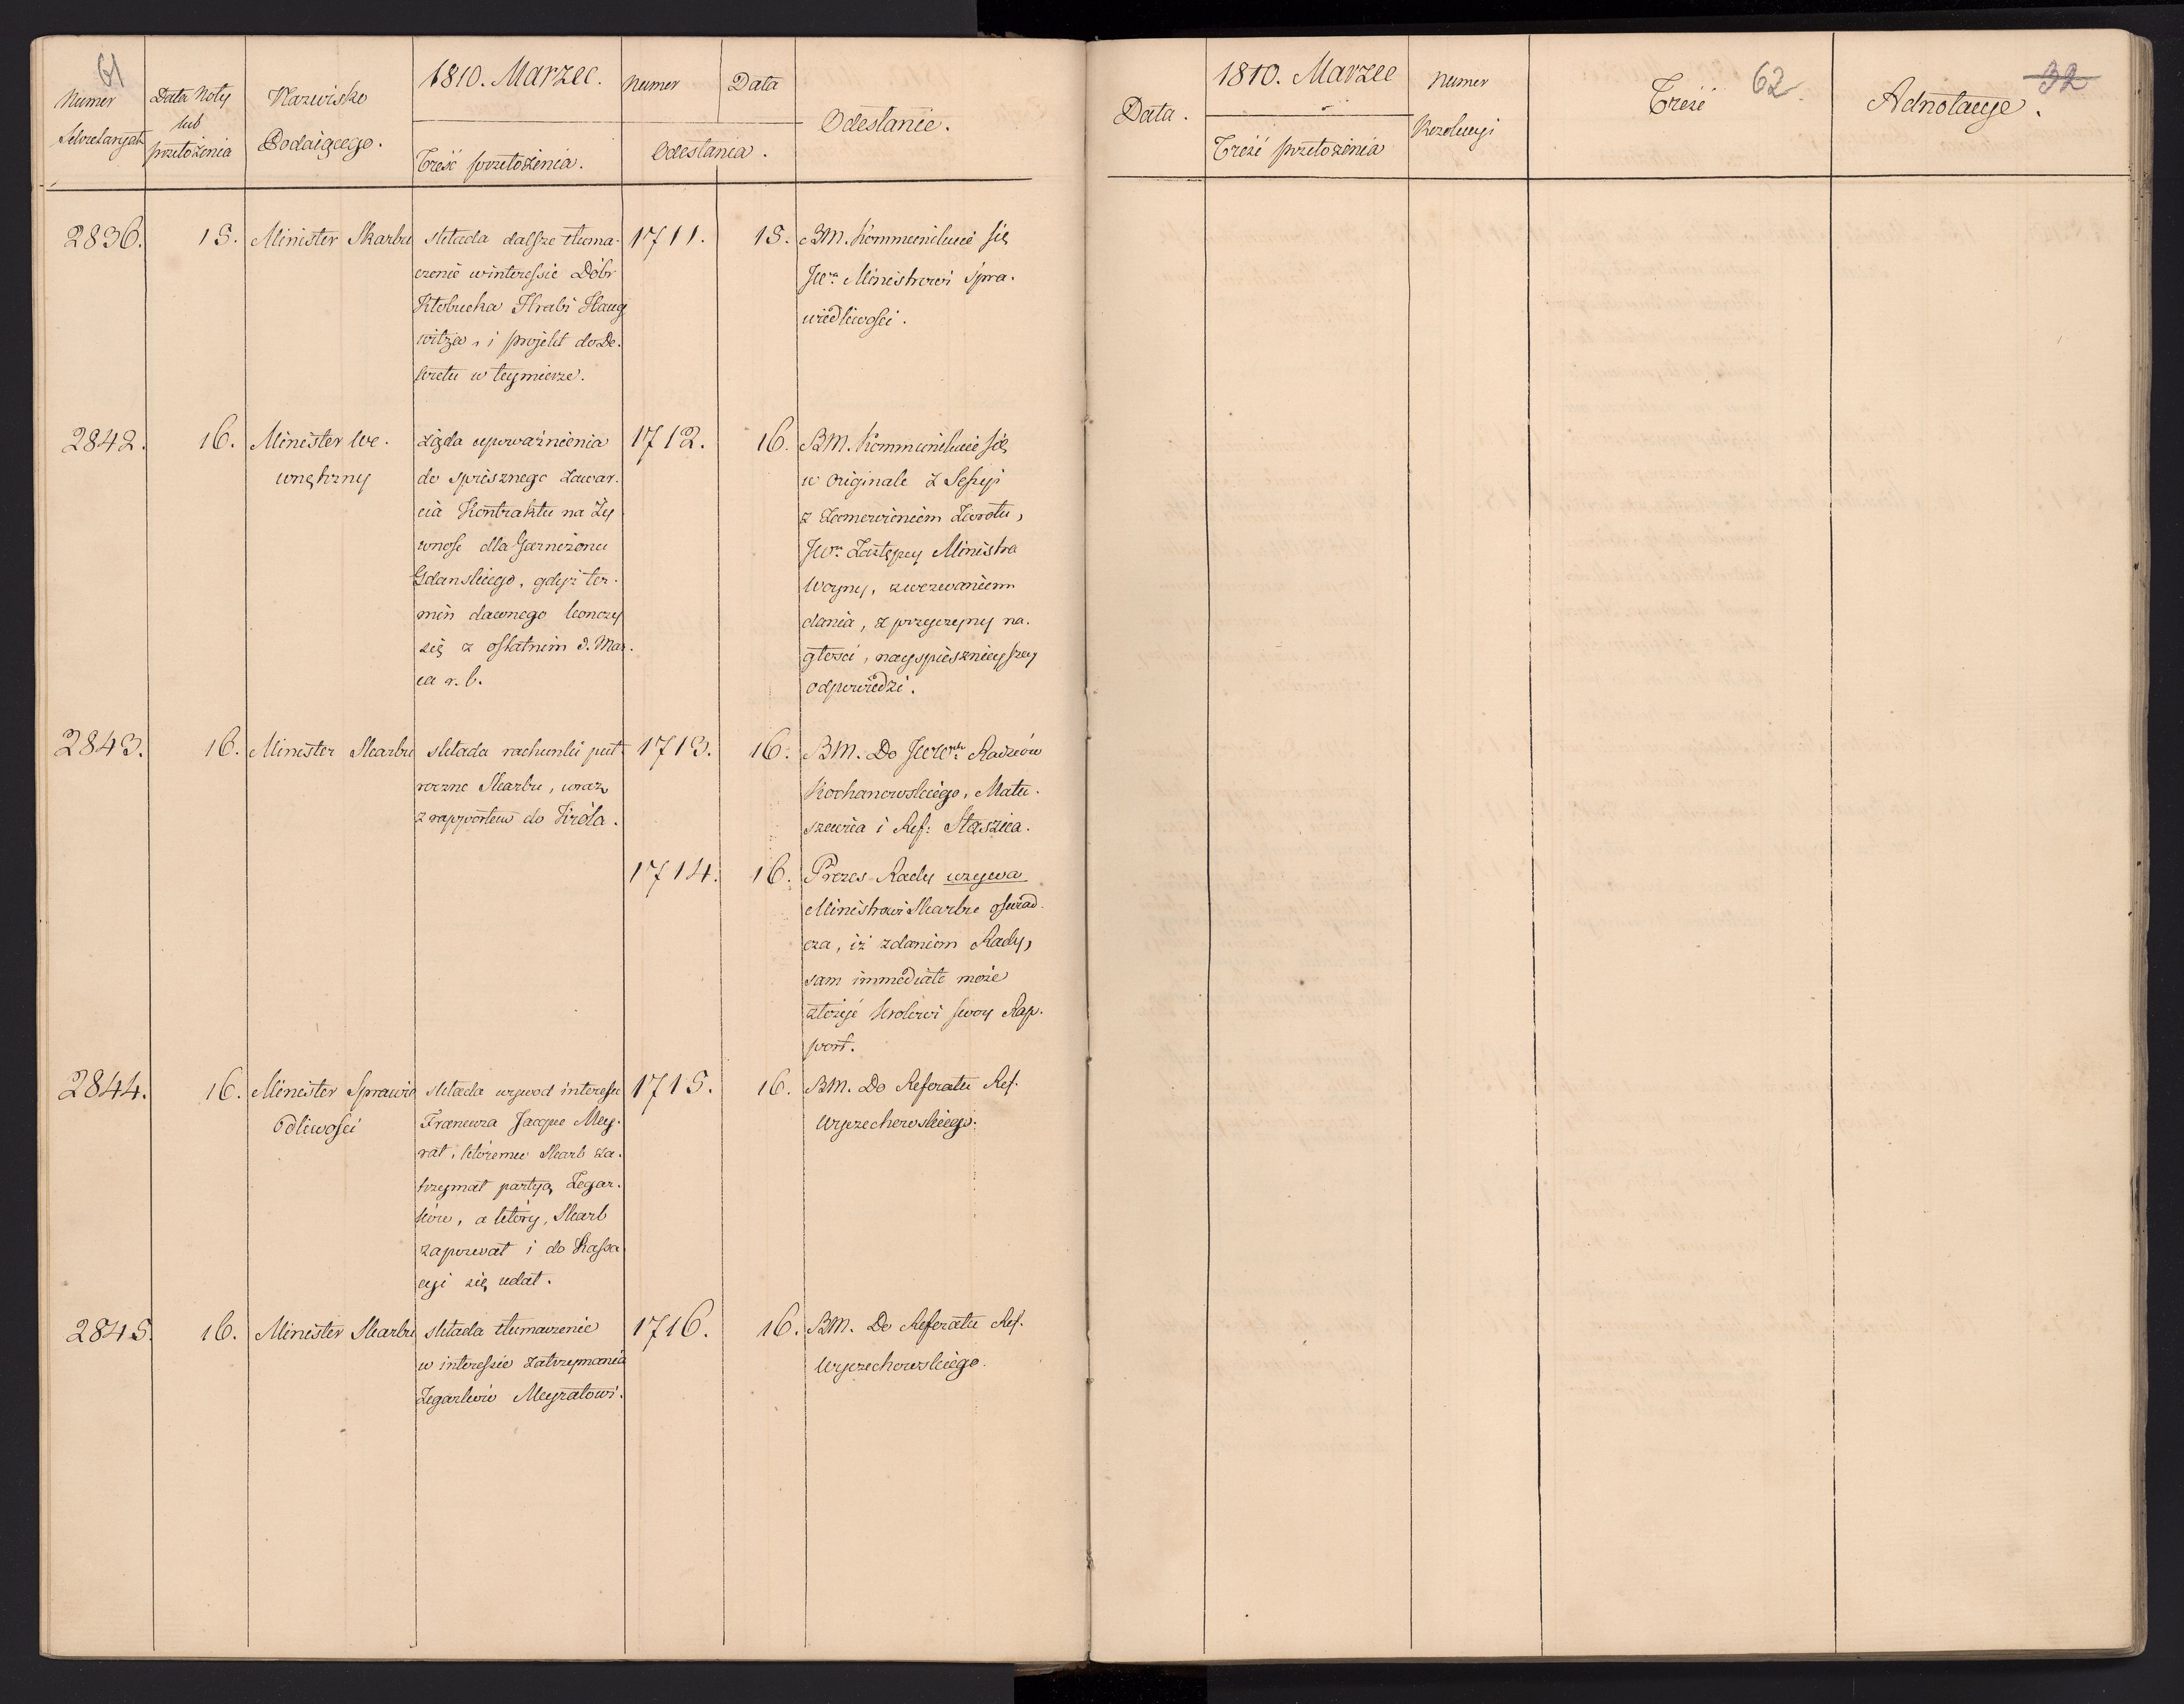 61
Numer
Sekretaryatu
Data Noty
lub
przełożenia
Nazwisko
Podaiącego.
1810. Marzec.
Treść przełożenia.
Numer
Data
Odesłania.
Odesłanie.
2836.
15.
Minister Skarbu
składa dalsze tłuma-
czenie w interessie Dóbr
Kłobucka Hrabi Haug
witza, i projekt do De-
kretu w tey mierze.
1711.
15.
BM. Kommunikuie się
JWu Ministrowi Spra-
wiedliwości.
2842.
16.
Minister We-
wnętrzny
żąda upoważnienia
do spiesznego zawar-
cia Kontraktu na Ży
wność dla Garnizonu
Gdanskiego, gdyż ter-
min dawnego kończy
się z ostatnim d. Mar-
ca r. b.
1712.
16.
BM. Kommunikuie się
w originale z Sessyi
z zamówieniem zwrotu,
JWu Zastępcy Ministra
Woyny, z wezwaniem
dania, z przyczyny na-
głości, nayspieszniejszey
odpowiedzi.
2843.
16.
Minister Skarbu
składa rachunki puł-
roczne Skarbu, wraz
z rapportem do Króla.
1713.
16.
BM. Do JWWch Radzców
Kochanowskiego, Matu-
szewica i Ref: Staszica.
1714.
16.
Prezes Rady wzywa
Ministrowi Skarbu oswiad-
cza, iż zdaniem Rady,
sam immediate może
złożyć Krolowi swoy Rap-
port.
2844.
16.
Minister Sprawie
dliwości
składa wywod interessu
Francuza Jacque Mey-
rat, któremu Skarb za-
trzymał partyą Zegar-
ków, a który, Skarb
zapozwał i do Kassa
cyi się udał.
1715.
16.
BM. Do Referatu Ref.
Wyczechowskiego.
2845.
16.
Minister Skarbu
składa tłumaczenie
w interessie zatrzymania
Zegarków Meyratowi.
1716.
16.
BM. Do Referatu Ref.
Wyczechowskiego.
Data.
1810. Marzec
Treść przełożenia
Numer
Rezolucyi
Treść
62
Adnotacye.
32